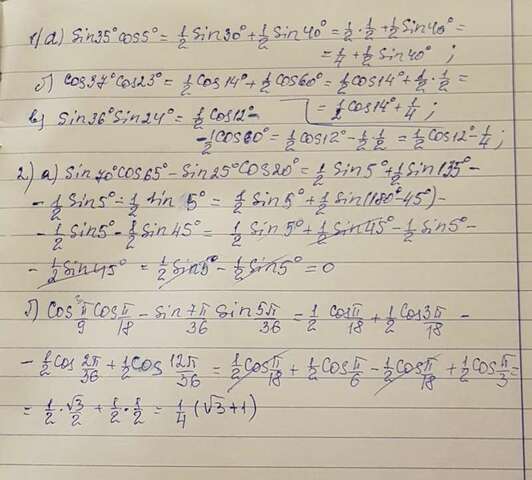 1) а) Sin35°cos5° = 1/2 Sin30° + 1/2 Sin40° = 1/2 · 1/2 + 1/2 Sin40° =
= 1/4 + 1/2 Sin40° ;
б) Cos37°Cos23° = 1/2 Cos14° + 1/2 Cos60° = 1/2 Cos14° + 1/2 · 1/2 =
= 1/2 Cos14° + 1/4 ;
в) Sin36°Sin24° = 1/2 Cos12° -
- 1/2 Cos60° = 1/2 Cos12° - 1/2 · 1/2 = 1/2 Cos12° - 1/4 ;
2.) а) Sin70°Cos65° - Sin25°Cos20° = 1/2 Sin5° + 1/2 Sin135° -
- 1/2 Sin5° - 1/2 Sin 5° = 1/2 Sin5° + 1/2 Sin(180° - 45°) -
- 1/2 Sin5° - 1/2 Sin45° = 1/2 Sin5° + 1/2 Sin45° - 1/2 Sin5° -
- 1/2 Sin45° = 1/2 Sin5° - 1/2 Sin5° = 0
б) Cos π/9 Cos π/18 - Sin 7π/36 Sin 5π/36 = 1/2 Cos π/18 + 1/2 Cos 3π/18 -
- 1/2 Cos 2π/36 + 1/2 Cos 12π/36 = 1/2 Cos π/18 + 1/2 Cos π/6 - 1/2 Cos π/18 + 1/2 Cos π/3 =
= 1/2 · √3/2 + 1/2 · 1/2 = 1/4 (√3 + 1)